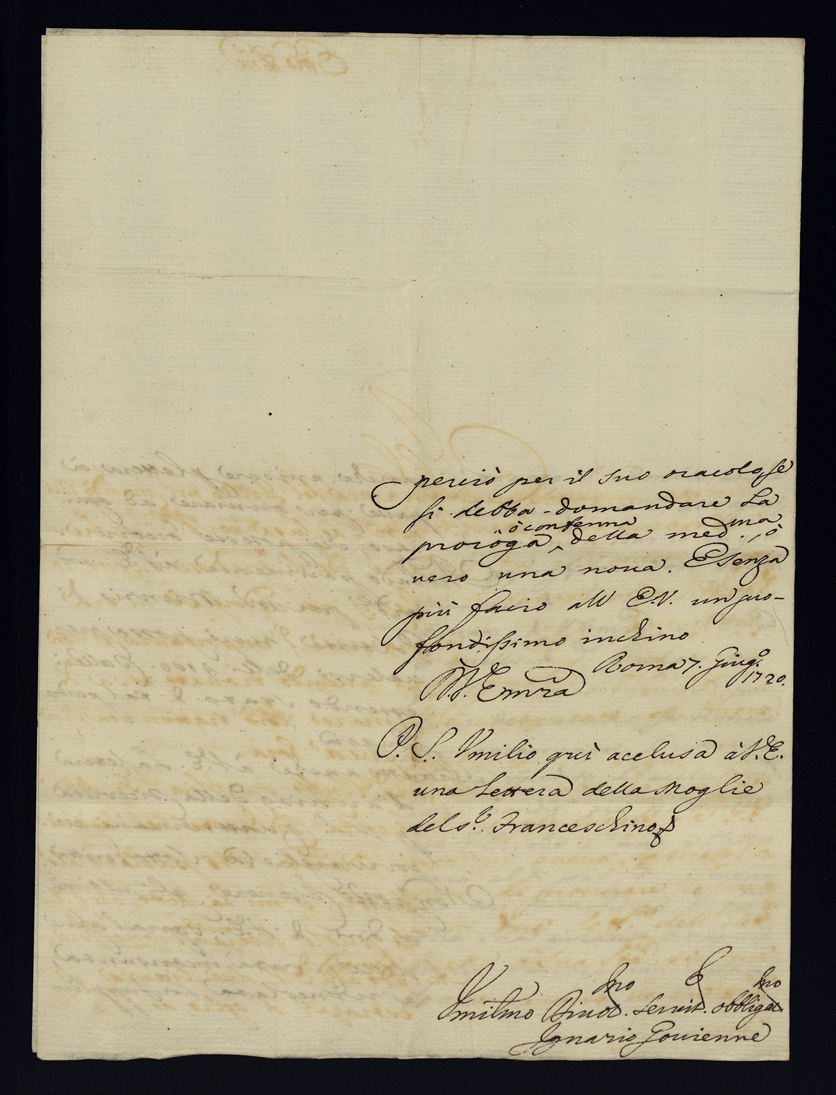 perciò per il suo oracolo se
si debba domandare La
ò conferma
proroga ^ della med.ma, ò
vero una nova. E senza
più facio all' E.V. un pro-
fondissimo inchino
Roma 7. Giug.o
1720.
P. S. Umilio qui aclusa à V.E.
una Lettera della Moglie
del S.r Franceschino
Umilmo Divot.mo Servit.e obbligat.mo
Ignazio